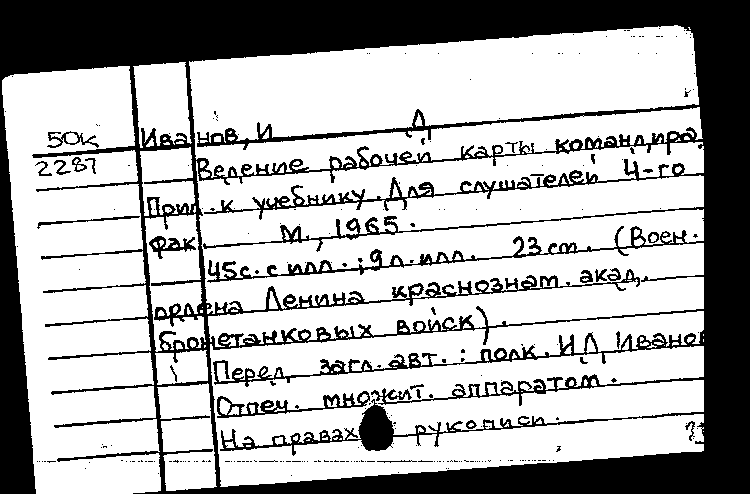 50к Иванов, И Д
2287 Ведение рабочей карты командира.
Прил. к учебнику. Для слушателей 4-го
фак. М., 1965.
45с. с илл.; 9л. илл. 23 cm. (Воен.
ордена Ленина краснознам. акад.
бронетанковых войск).
Перед загл. авт.: полк. И.Д. Иванов
Отпеч. множит. аппаратом.
На правах рукописи.